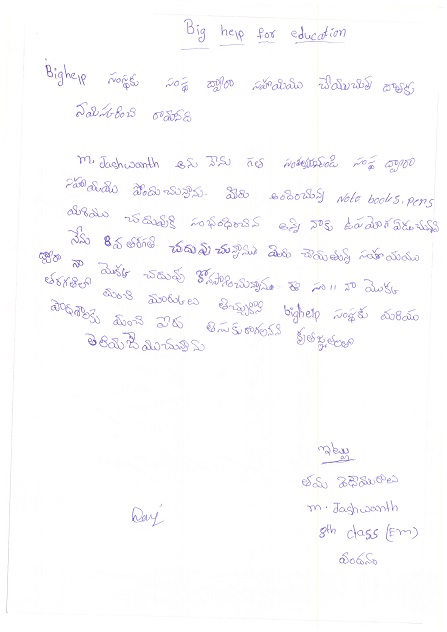 Big help for education
Bighelp సంస్థకు సంస్థ ద్వారా సహాయము చేయుచున్న దాతకు
నమస్కరించి రాయునది
M. Jashwanth అను నేను గత సంవత్సరము నుండి సంస్థ ద్వారా
సహాయము పొందుచున్నాను. మీరు అందించుచున్న Note books, pens
మరియు చదువుకి సంభందించిన అన్ని నాకు ఉపయోగపడుచున్నవి
నేను 8వ తరగతి చదువుచున్నాను మీరు చేయుచున్న సహాయము
ద్వారా నా యొక్క చదువు కొనసాగించుచున్నాను. ఈ సం॥ నా యొక్క
తరగతిలో మంచి మార్కులు తెచ్చుకొని bighelp సంస్థకు మరియు
పాఠశాలకు మంచి పేరు తీసుకురాగలనని కృతజ్ఞతలతో
తెలియజేయుచున్నాను
ఇట్లు
తమ
M. Jashwanth
8th class (EM)